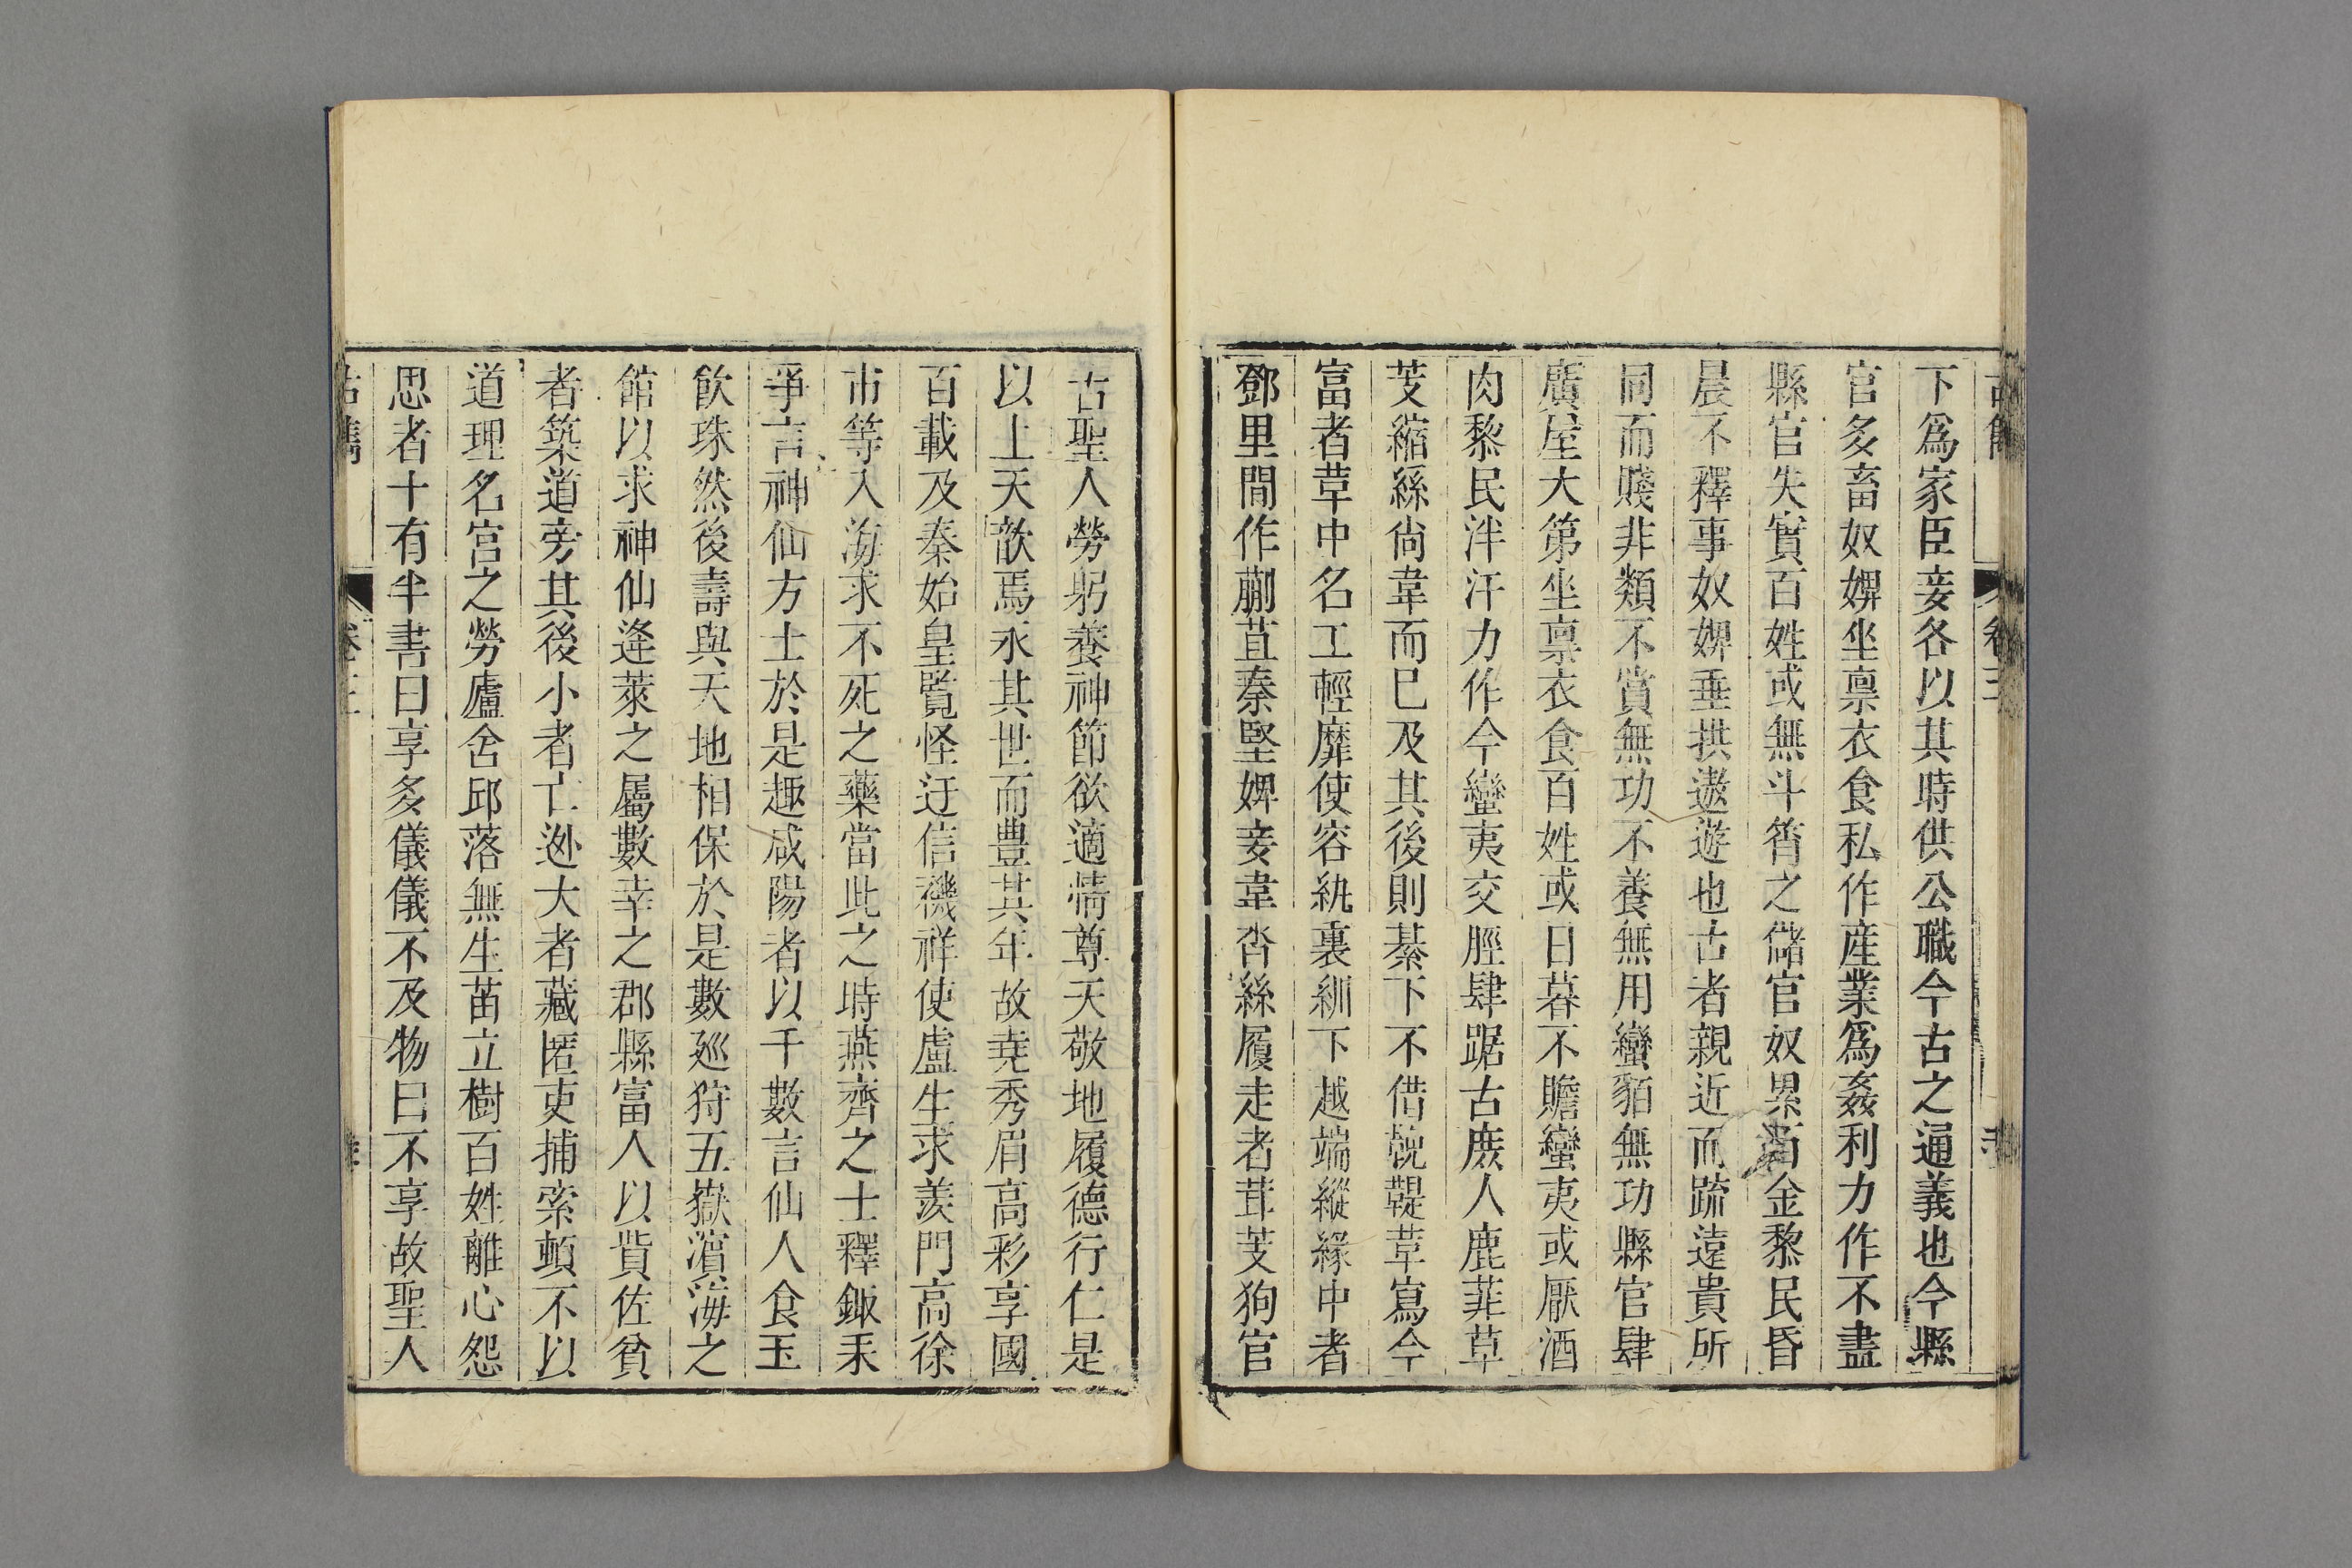 卷三
下爲家臣妾各以其時供公職今古之通義也今縣
官多畜奴婢坐禀衣食私作産業爲姦利力作不盡
縣官失實百姓或無斗筲之儲官奴累百金黎民昏
晨不釋事奴婢垂拱遨遊也古者親近而疏遠貴所
同而賤非類不賞無功不養無用蠻貊無功縣官肆
廣屋大第坐禀衣食百姓或旦暮不贍蠻夷或厭酒
肉黎民泮汗力作今蠻夷交脛肆踞古庶人鹿菲草
芰縮絲尚韋而已及其後則綦下不借鞔鞮革舄今
富者革中名工輕靡使容紈裏紃下越端縱緣中者
鄧里間作蒯苴秦堅婢妾韋沓絲履走者茸芰狗官
古聖人勞躬養神節欲適情尊天敬地履德行仁是
以上天歆焉永其世而豊其年故堯秀眉高彩享國
百載及秦始皇覽怪迂信禨祥使盧生求羨門高徐
市等入海求不死之藥當此之時燕齊之士釋鋤耒
爭言神仙方士於是趣咸陽者以千數言仙人食玉
飲珠然後壽與天地相保於是數廵狩五嶽濵海之
館以求神仙逢萊之屬數幸之郡縣富人以貲佐貧
者築道旁其後小者亡逊大者藏匿吏捕索頓不以
道理名宫之勞廬舍邱落無生苗立樹百姓離心怨
思者十有半書曰享多儀儀不及物曰不享故聖人